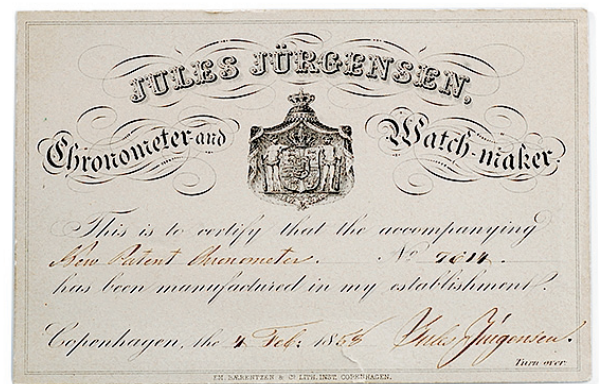 JULES JÜRGENSEN,
Chronometer and Watch-maker
This is to certify that the accompanying
New Patent Chronometer. No 7614.
has been manufactured in my establishment.
Copenhagen, the 4 Feb. 1858 Jules Jürgensen.
Turn over
EM. BÆRENTZEN & Co LITH. INST. COPENHAGEN.